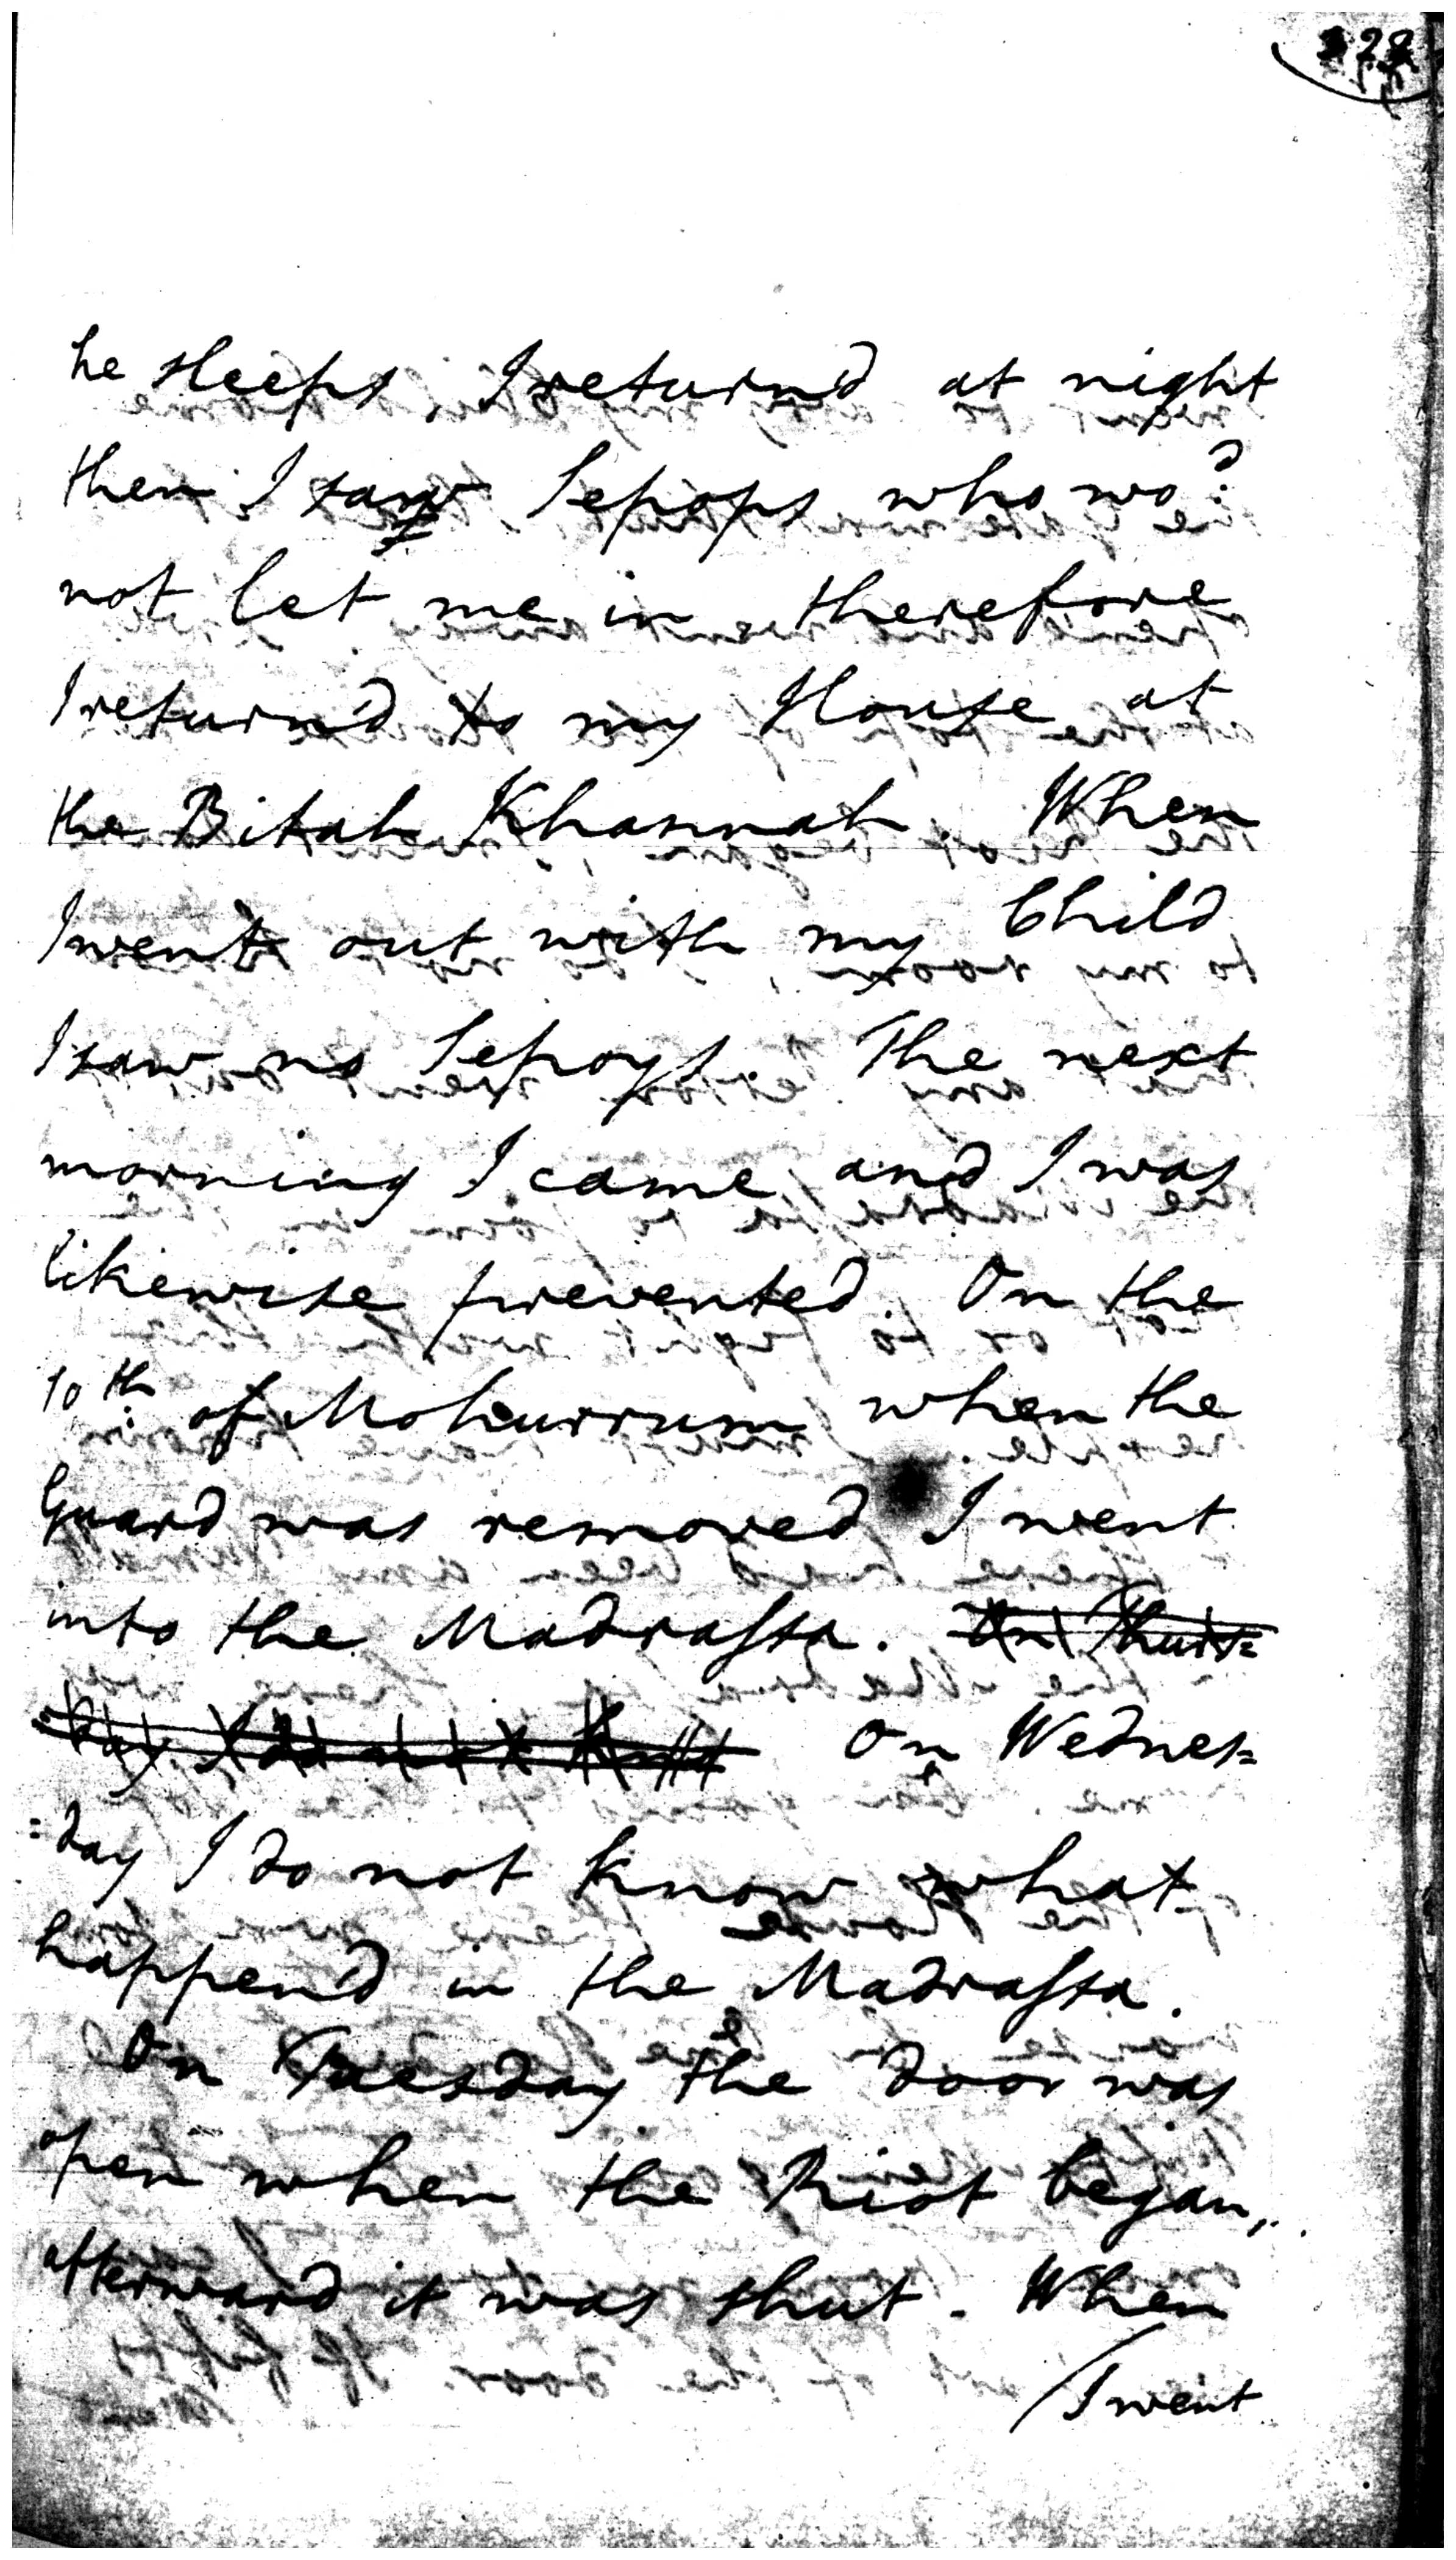 he sleeps I return'd at night
then I saw Sepoys who wo:d
not let me in therefore
I return'd to my House at
the Bitah Khannah. When
I went out with my Child
I saw no Sepoys. The next
morning I came and I was
likewise prevented. On the
10th: of Mohurrum when the
Guard was removed I went
into the Madrassa. On Thurs=
=day I do not know On Wednes=
=day I do not know what
happen'd in the Madrassa.
On Tuesday the door was
open when the Riot began,
afterward it was shut. When
I went